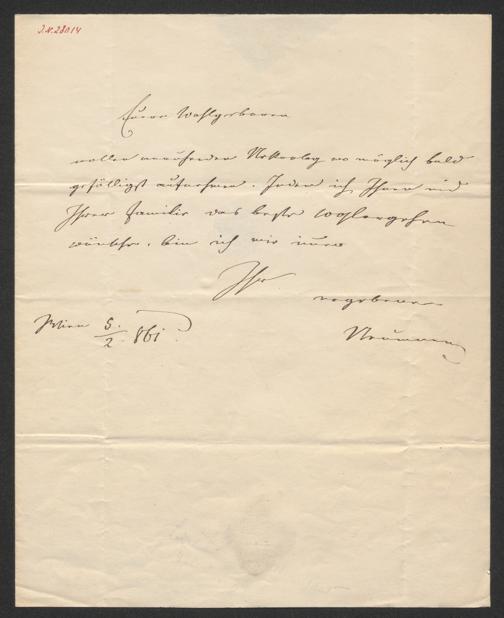 J.N. 28014
Euer Wohlgeboren
wollen anruhenden Nekrolog wo möglich bald
gefälligst aufnehmen. Indem ich Ihnen und
Ihrer Familie das beste Wohlergehen
wünsche, bin ich wie immer
Ihr
ergebener
Wien 5./2. 861.
Neumann